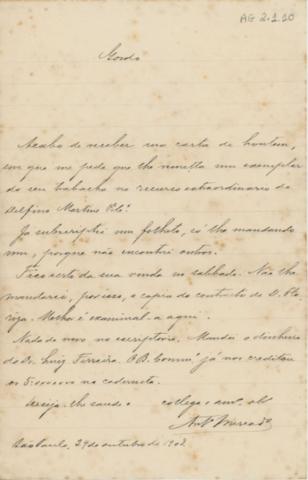 AG 2.1.10
Gordo
Acabo de receber sua carta de hontem,
em que me pede que lhe remetta um exemplar
do seu trabalho no recurso extraordinario de
Delfino Martins
Ja um folheto, só lhe mandando
um, porque não encontrei outros.
Fico certo da sua vinda no sabbado. Não lhe
mandarei, por isso, a copia do contracto de D.
Melhor é examinal-a aqui.
Nada de novo no escriptorio. Mandei o dinheiro
do Dr. Luiz Ferreira. O B. já nos creditou
os na caderneta.
Desejo-lhe saude e collega e am.
Mercado
São Paulo, 29 de outubro de 1902.